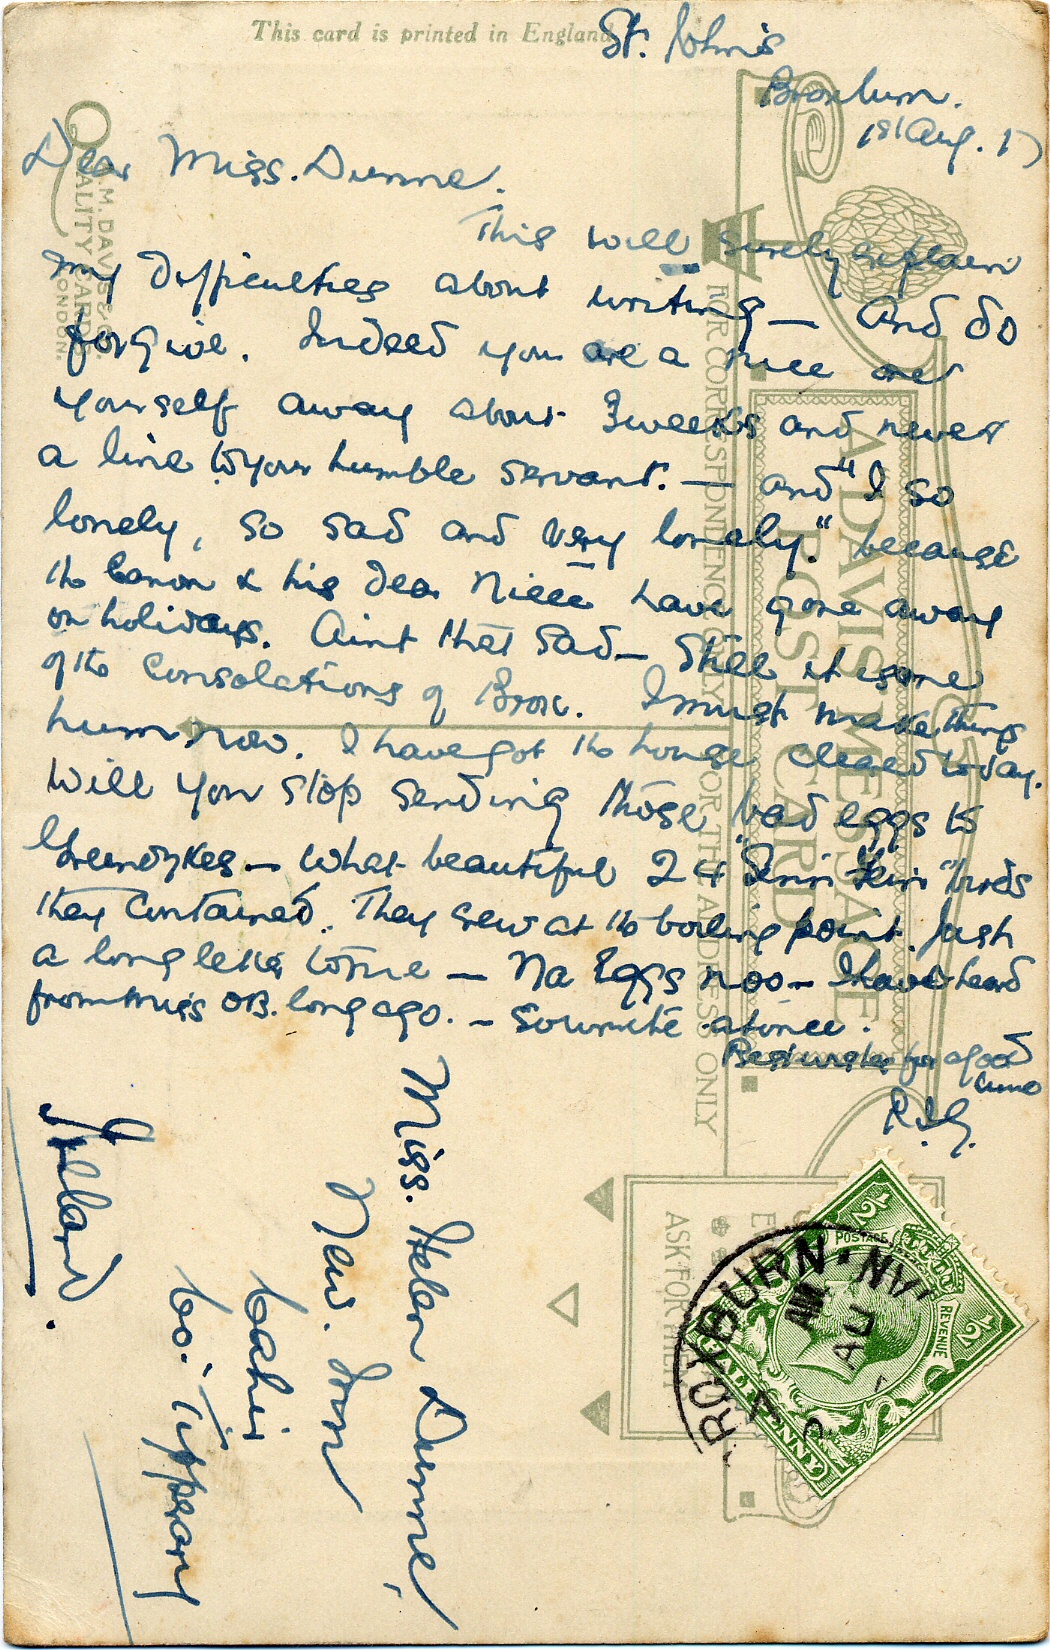 This card is printed in England
St. John's
Broxburn.
1st Aug. 17
Dear Miss. Dunne.
This will surely explain
my difficulties about writing — And do
forgive. Indeed you are a nice one
yourself away about 3 weeks and never
a line to your humble servant. — and "I so
lonely, so sad and very lonely." because
the Canon & his dear Niece have gone away
on holidays. Aint that sad — Still it is one
of the Consolations of Brox. I must make things
hum now. I have got the house cleared today.
Will you stop sending those bad eggs to
Greendykes — What beautiful 24 birds
they contained. They crew at the boiling point. Just
a long letter to me — Na Eggs noo — I have heard
from Miss OB. long ago. — So write at once.
Best wishes for a good
time
Miss. Helen Dunne,
New. Inn
Cahir
Co. Tipperary
Ireland.
A.M. DAVIS & CO.
QUALITY CARDS
LONDON.
A DAVIS MESSAGE
POST CARD
FOR CORRESPONDENCE ONLY
FOR THE ADDRESS ONLY
ASK FOR THEM
POSTAGE
REVENUE
1/2
1/2
HALFPENNY